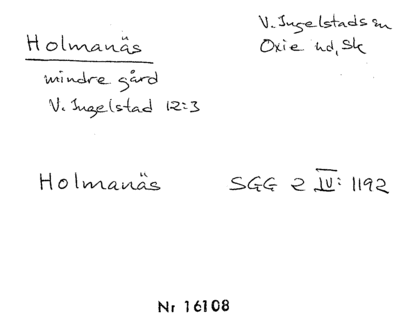 Holmanäs
mindre gård
V. Ingelstad 12:3
V. Ingelstads sn
Oxie hd, Sk
Holmanäs SGG 2 IV: 1192
Nr 16108